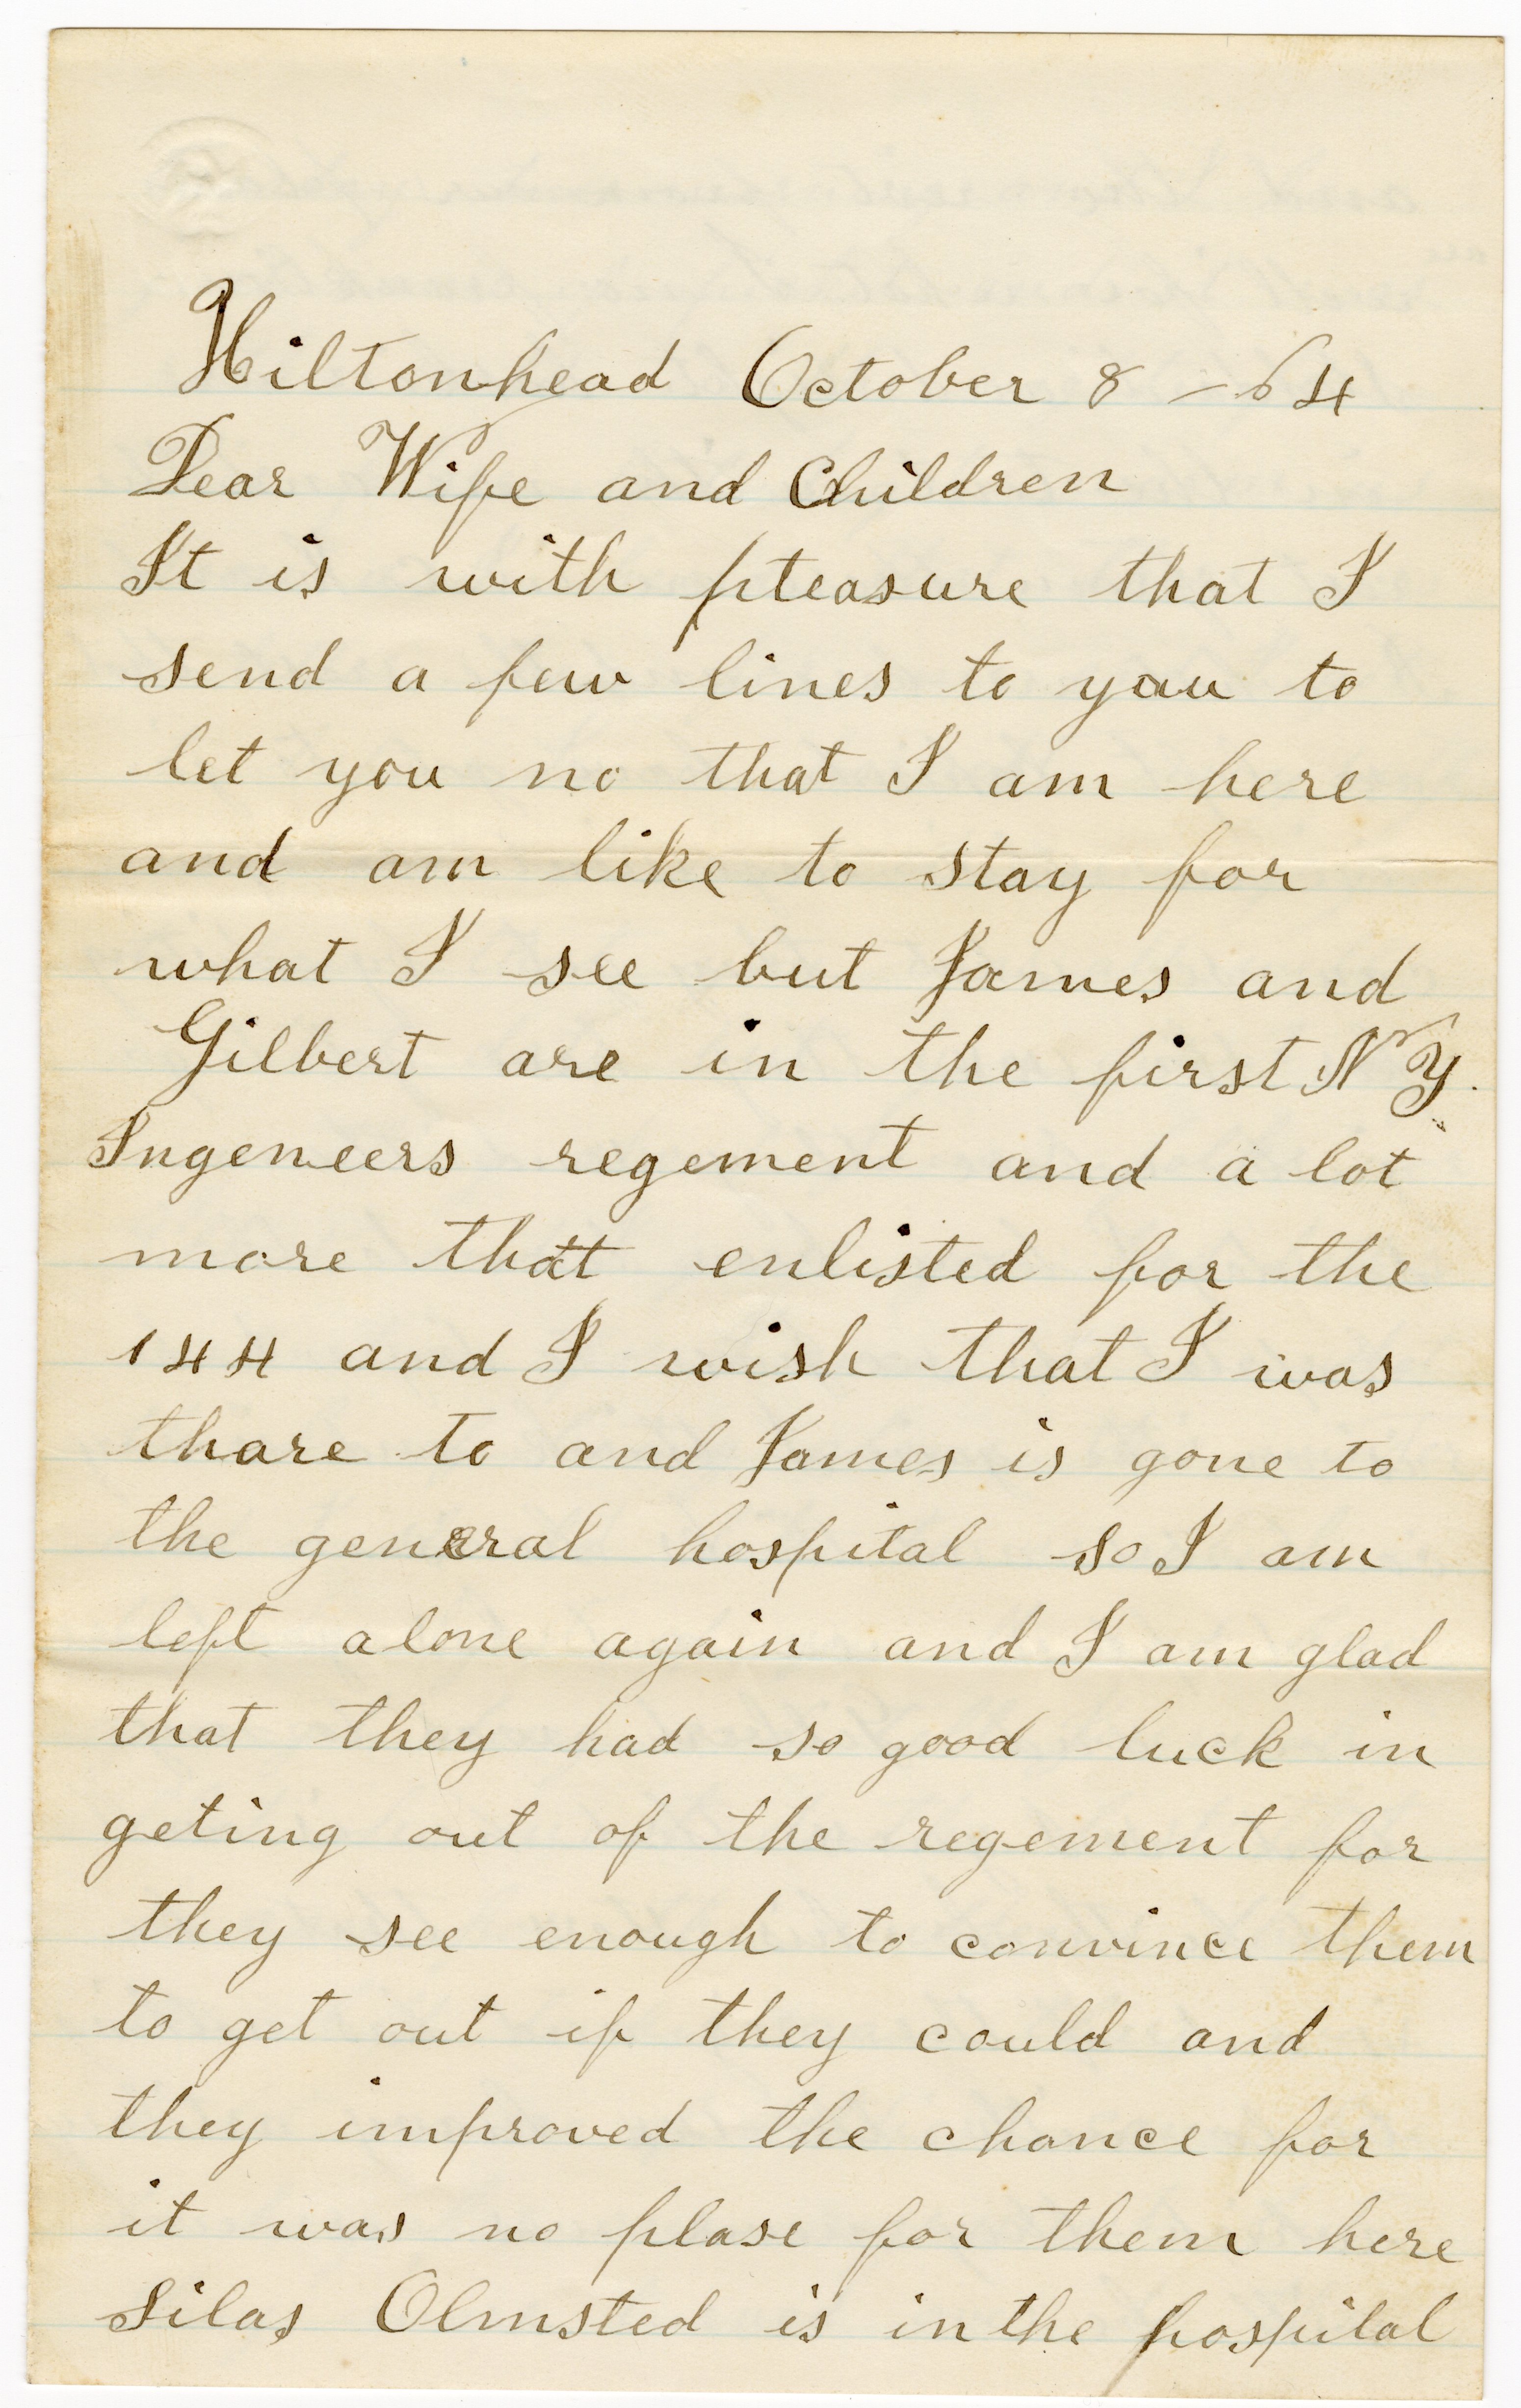 Hiltonhead October 8 - 64
Dear Wife and Children
It is with pteasure that I
send a few lines to you to
let you no that I am here
and am like to stay for
what I see but James and
Gilbert are in the first N Y.
Ingeneers regement and a lot
more that enlisted for the
144 and I wish that I was
thare to and James is gone to
the general hospital so I am
left alone again and I am glad
that they had so good luck in
geting out of the regement for
they see enough to convince them
to get out if they could and
they improved the chance for
it was no plase for them here
Silas Olmsted is in the hospital